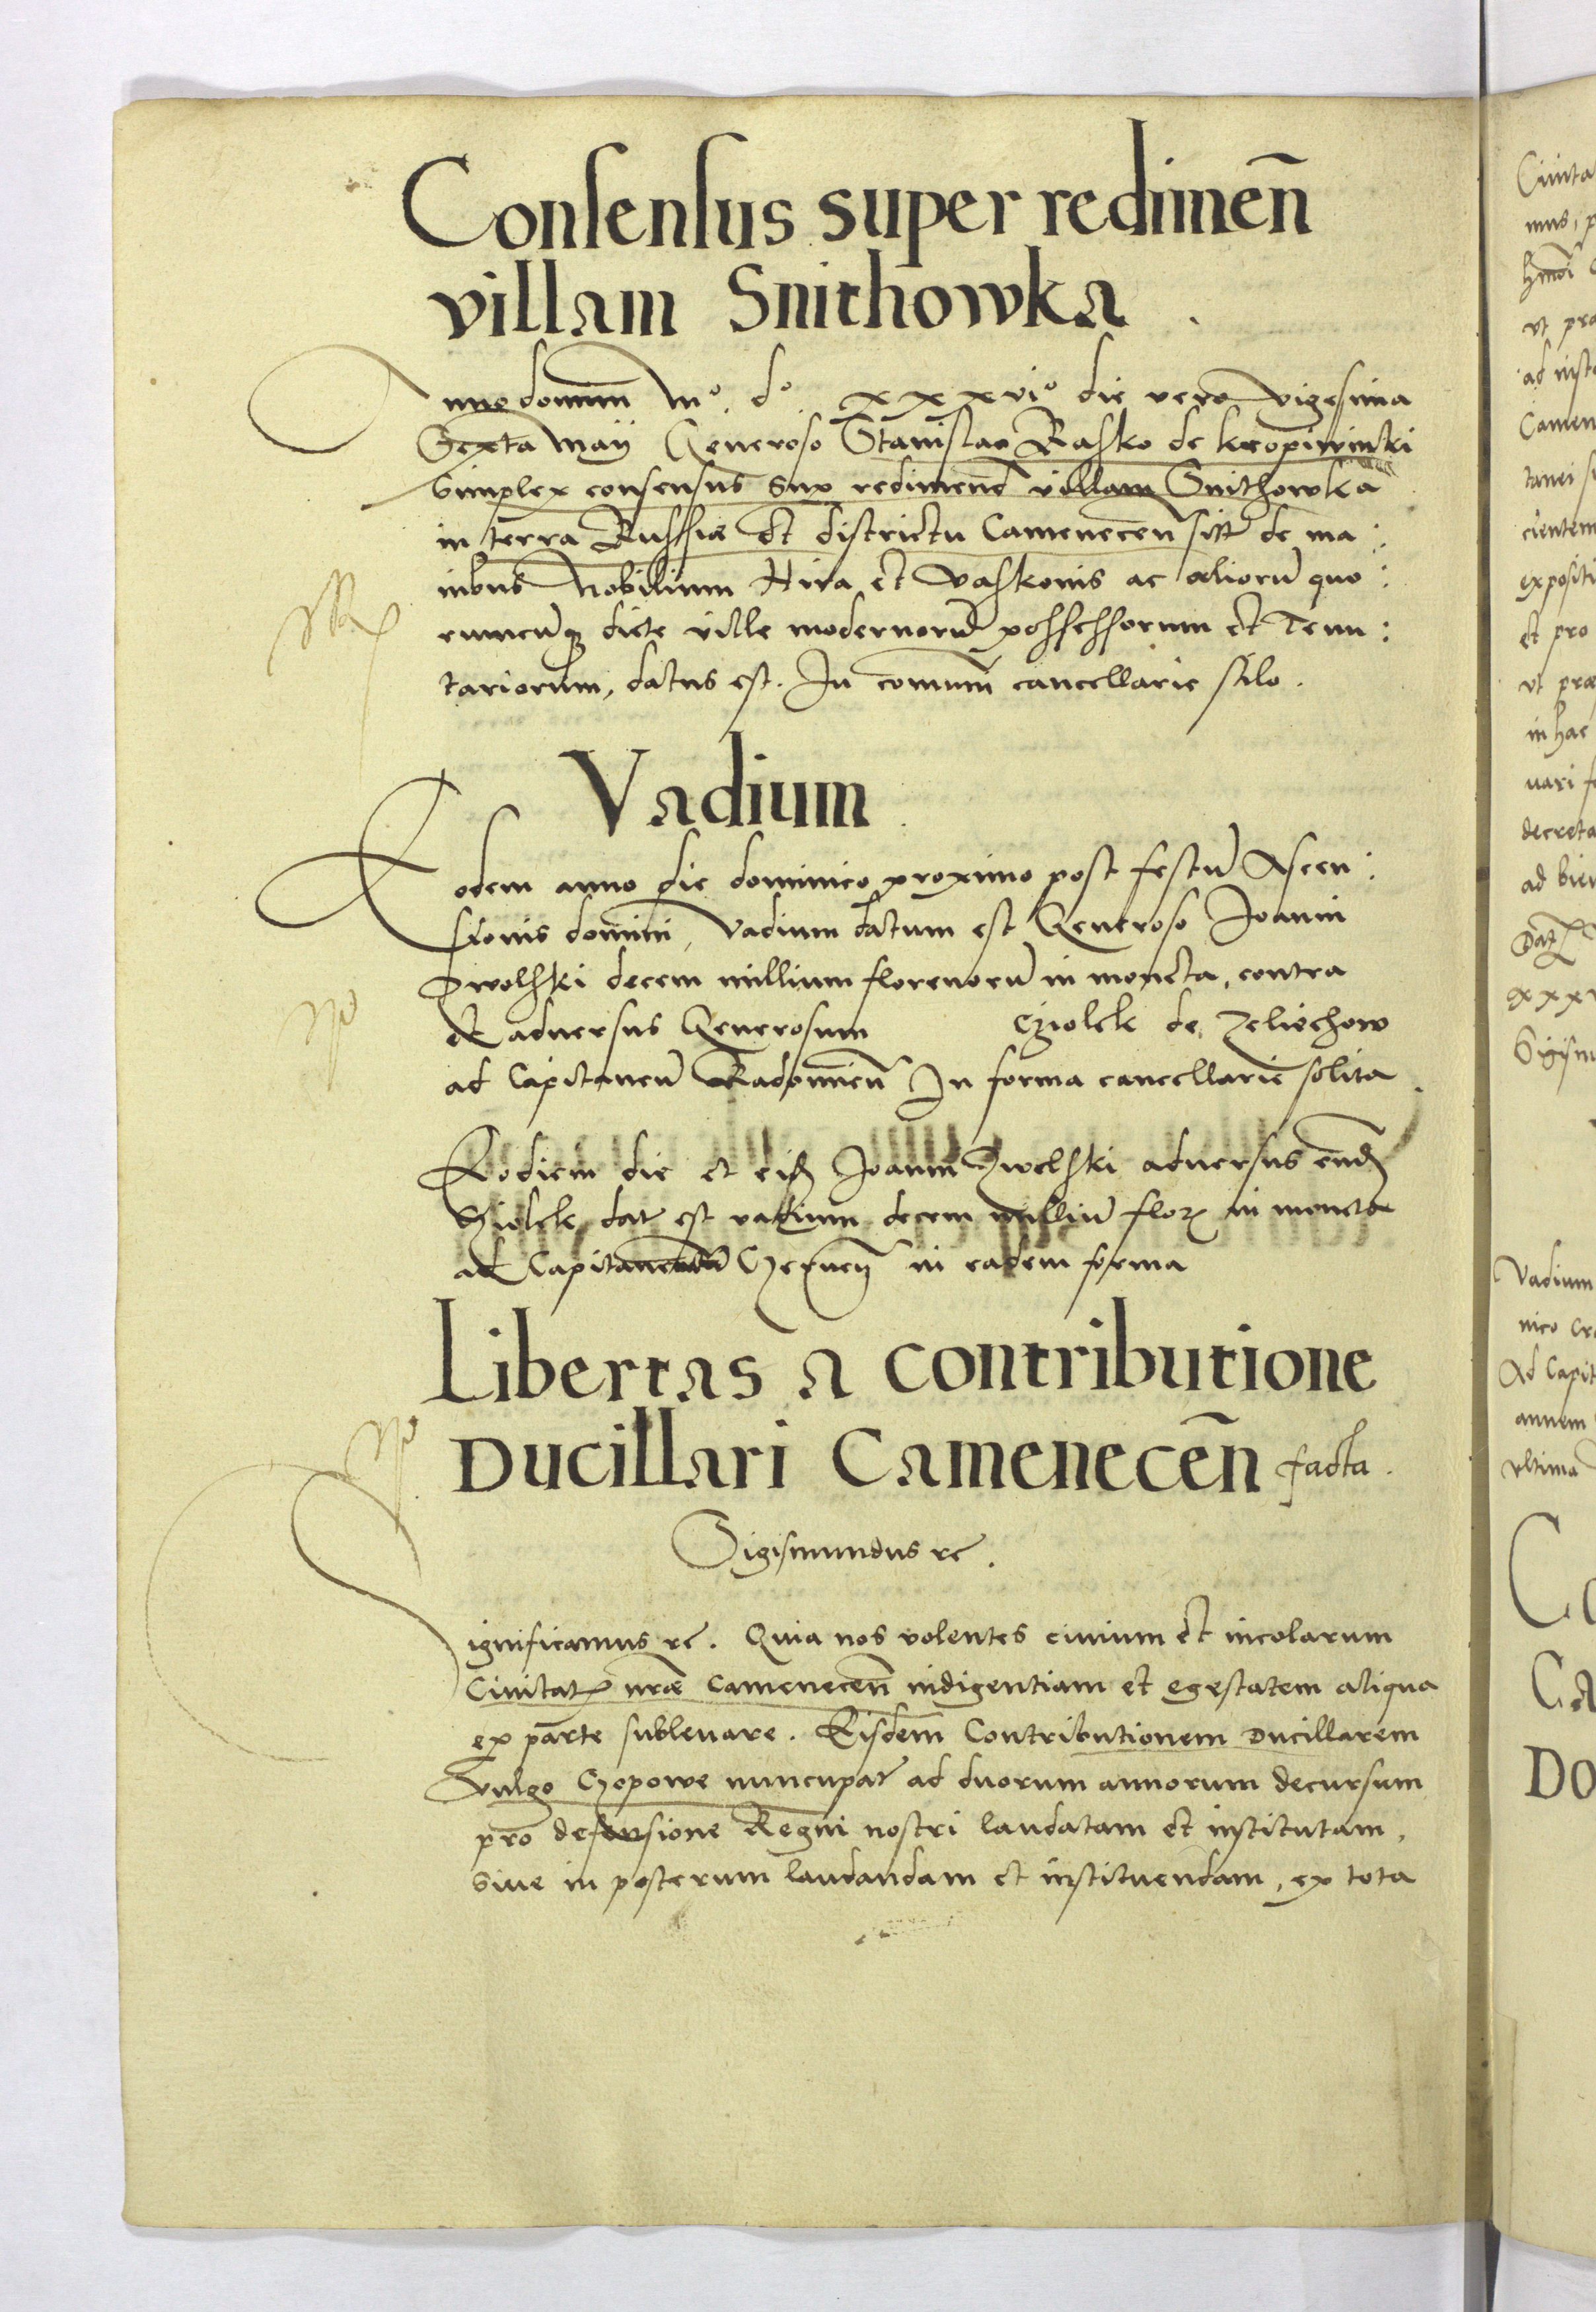 Consensus super redimen̄
villam Snithowka.
Anno domini mº. dº. xxxviº die vero vigesima
Sexta maÿ Generoso Stanislao Rasko de kropiwinski
simplex consensus sup redimend villam Snithowka
in terra Russiæ et districtu Camenecen̄ sitt de ma:
nibus Nobilium Hira et Vaskonis ac aliorū quo:
rumcūq dicte ville modernorū possessorum et Tenu:
tariorum, datus est. In com̄uni cancellarie stilo.
Vadium
Eodem anno die dominico proximo post festū Ascen:
sionis domini, Vadium datum est Generoso Joanni
Zwolski decem millium florenorū in moneta, contra
et adversus Generosum Cziolek de Zeliechow
ad Capitaneū Radomien̄ In forma cancellarie solita
Eodiem die et eisd Joanni Zwolski adversus eund
Cziolek dat est vadium decem milliū flor in moneta
ad Capitaneatū in eadem forma
Libertas a contributione
Ducillari Camenecen̄ facta.
Sigismundus rc.
Significamus rc. Quia nos volentes civium et incolarum
Civitat nræ Camenecen̄ indigentiam et egestatem aliqua
ex parte sublevare. Eisdem Contributionem Ducillarem
vulgo Czopowe nuncupat ad duorum annorum decursum
pro defensione Regni nostri laudatam et institutam,
sive in posterum laudandam et instituendam, ex tota
Civita
ut pro
Camen
tanei
cientem
expositi
et pro
ut præ
in hac
vari
decreta
xxxv
Sigism
Vadium
nico
Ad Capit
annum
ultima
Co
Ca
Do